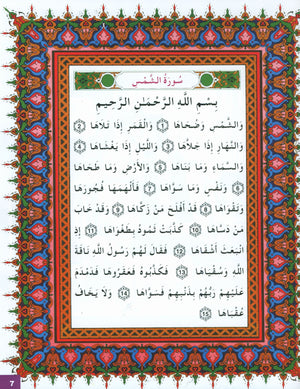 سُورَةُ الشَّمْسِ
بِسْمِ اللَّهِ الرَّحْمَـٰنِ الرَّحِيمِ
وَالشَّمْسِ وَضُحَاهَا ① وَالْقَمَرِ إِذَا تَلَاهَا ②
وَالنَّهَارِ إِذَا جَلَّاهَا ③ وَاللَّيْلِ إِذَا يَغْشَاهَا ④
وَالسَّمَاءِ وَمَا بَنَاهَا ⑤ وَالْأَرْضِ وَمَا طَحَاهَا
⑥ وَنَفْسٍ وَمَا سَوَّاهَا ⑦ فَأَلْهَمَهَا فُجُورَهَا
وَتَقْوَاهَا ⑧ قَدْ أَفْلَحَ مَنْ زَكَّاهَا ⑨ وَقَدْ خَابَ
مَنْ دَسَّاهَا ⑩ كَذَّبَتْ ثَمُودُ بِطَغْوَاهَا ⑪ إِذِ
انْبَعَثَ أَشْقَاهَا ⑫ فَقَالَ لَهُمْ رَسُولُ اللَّهِ نَاقَةَ
اللَّهِ وَسُقْيَاهَا ⑬ فَكَذَّبُوهُ فَعَقَرُوهَا فَدَمْدَمَ
عَلَيْهِمْ رَبُّهُمْ بِذَنْبِهِمْ فَسَوَّاهَا ⑭ وَلَا يَخَافُ
عُقْبَاهَا ⑮
7